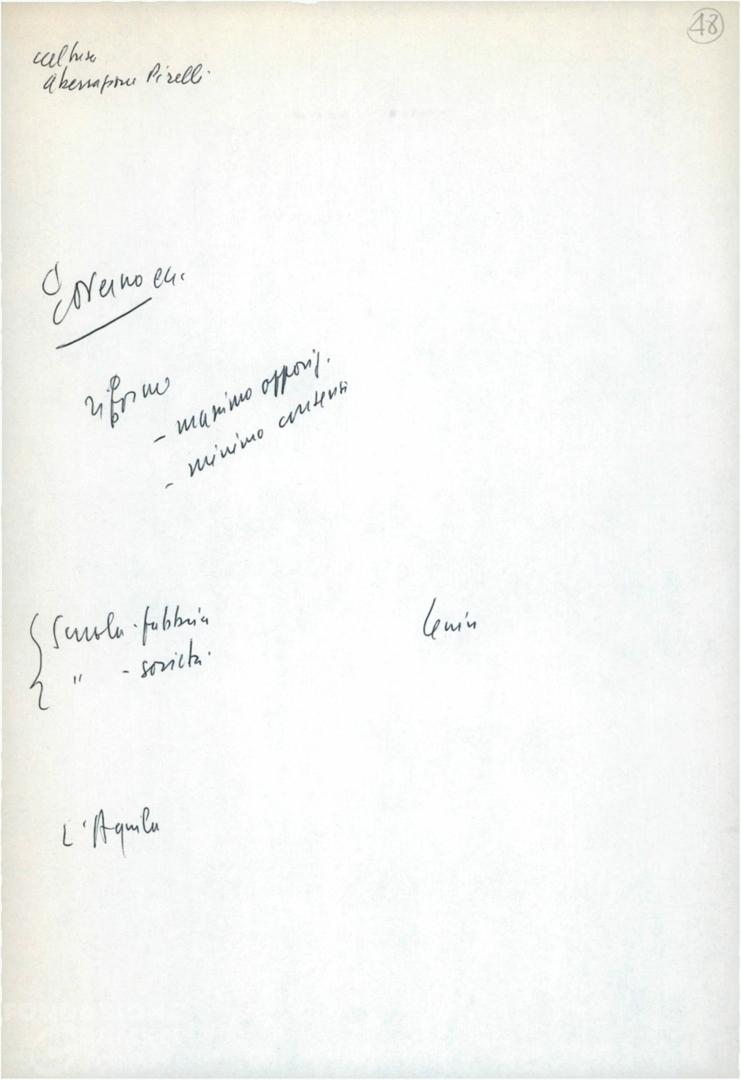 48
cultura
aberrazione Pirelli
Governo
riforme
- massimo opposiz.
- minimo
Scuola-fabbrica
" - società
Lenin
L'Aquila
FONDAZIONE